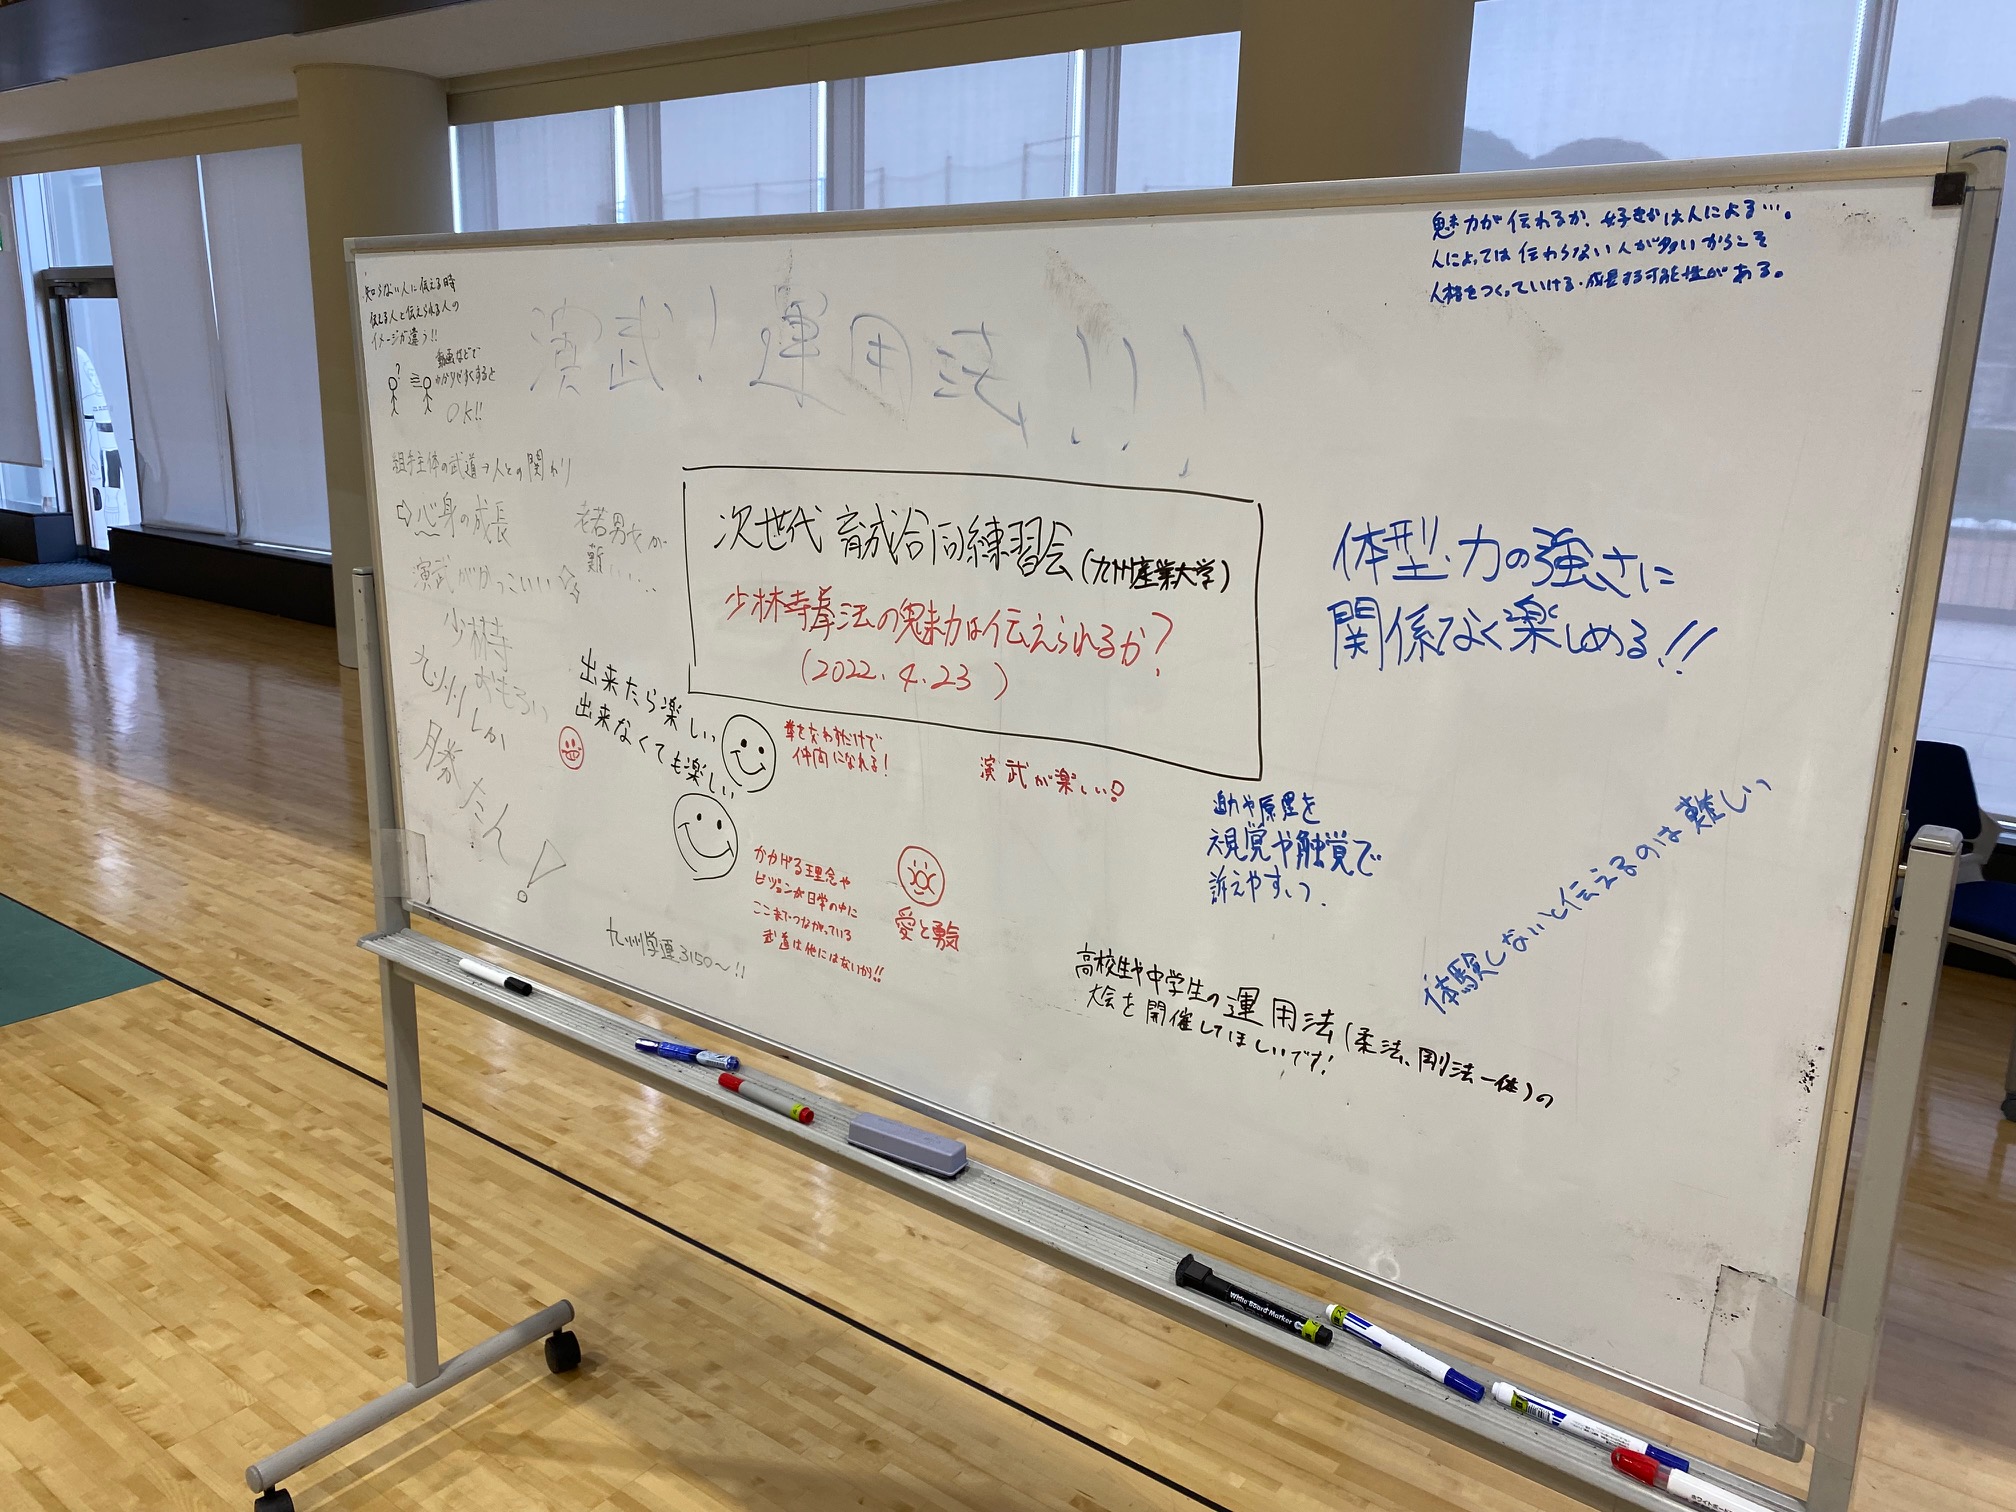 知らない人に伝える時
伝える人と伝えられる人の
イメージが違う!!
?
動画などで
わかりやすくすると
OK!!
演武!運用法!!!
魅力が伝わるか、好きかは人による…。
人によっては伝わらない人が多いからこそ
人格をつくっていける・成長する可能性がある。
組手主体の武道→人との関わり
⇨心身の成長
演武がかっこいい
老若男女が
難い……
少林寺
おもろい
九州しか
勝たん!
次世代育成合同練習会(九州産業大学)
少林寺拳法の魅力は伝えられるか?
(2022.4.23)
体型・力の強さに
関係なく楽しめる!!
出来たら楽しい
出来なくても楽しい
拳を交わすだけで
仲間になれる!
演武が楽しい!
かかげる理念や
ビジョンが日常の中に
ここまでつながっている
武道は他にはないから!!
愛と勇気
九州学連3150〜!!
迫力や原理を
視覚や触覚で
訴えやすい。
体験しないと伝えるのは難しい
高校生や中学生の運用法(柔法、剛法一体)の
大会を開催してほしいです!
White Board Marker